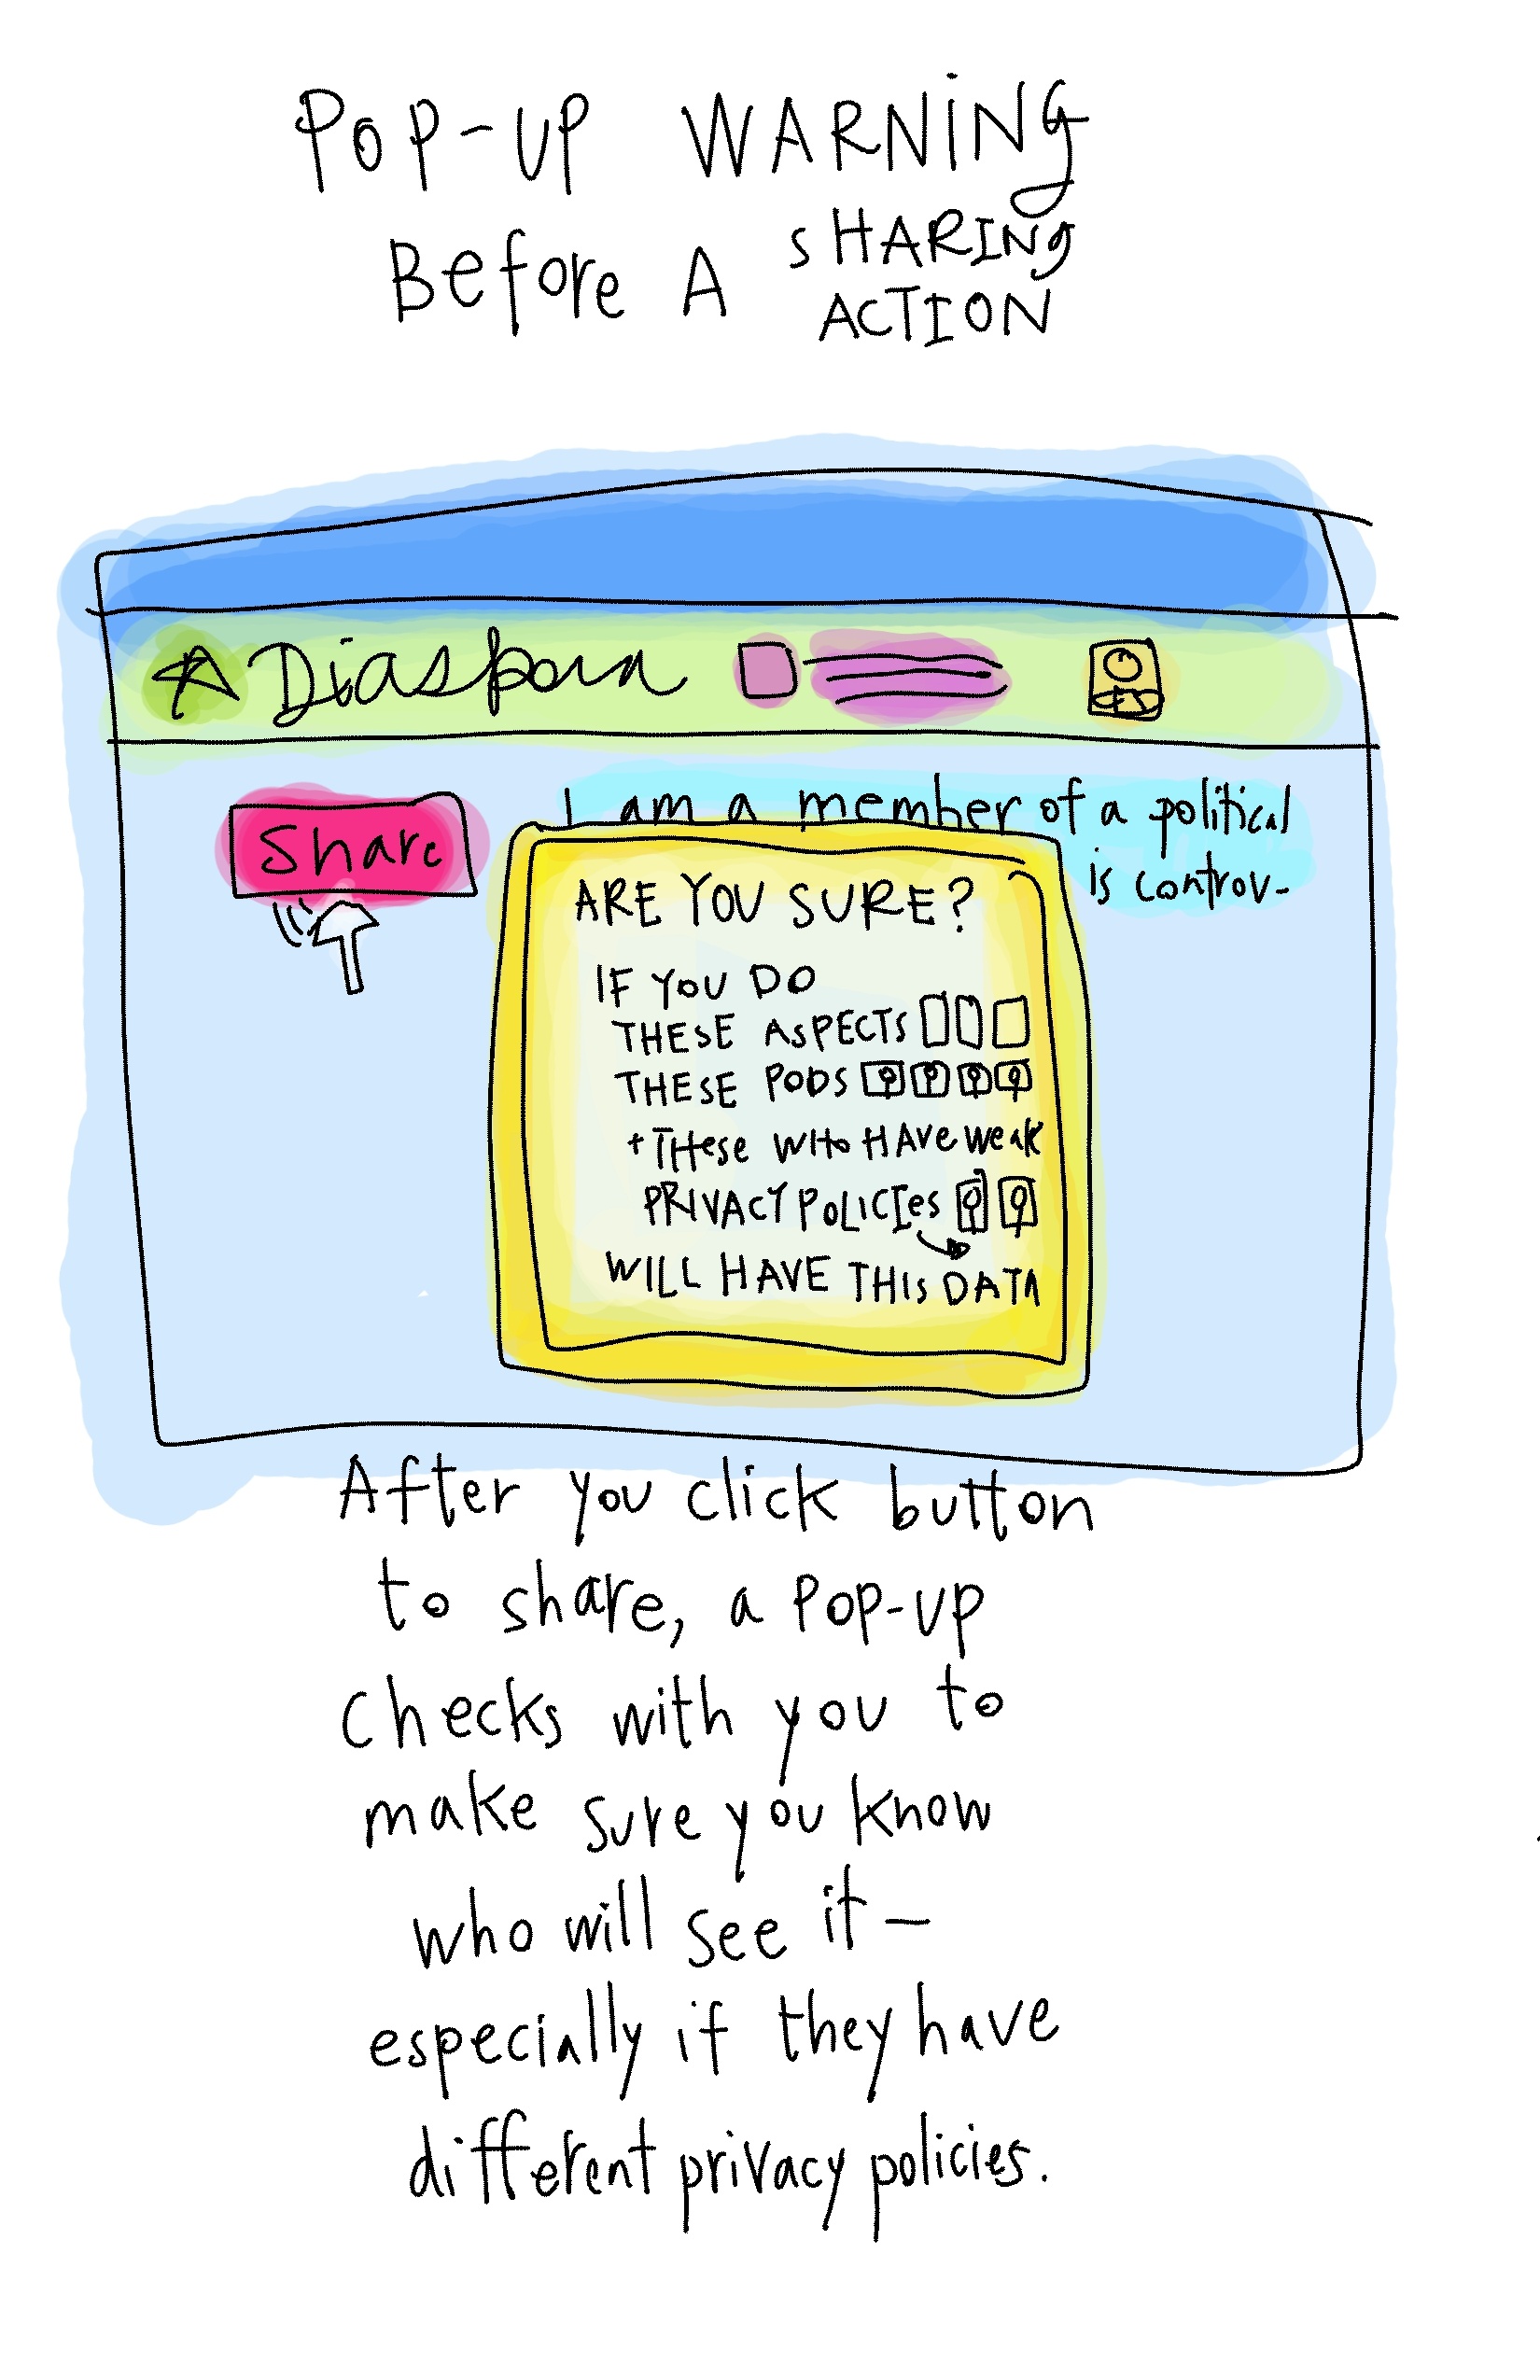 POP-UP WARNING
Before A SHARING
ACTION
Diaspora
Share
I am a member of a political
is controv-
ARE YOU SURE?
IF YOU DO
THESE ASPECTS
THESE PODS
+ THese WHo HAve weak
PRIVACY POLICIes
WILL HAVE THIS DATA
After you click button
to share, a POP-UP
checks with you to
make sure you know
who will see it -
especially if they have
different privacy policies.